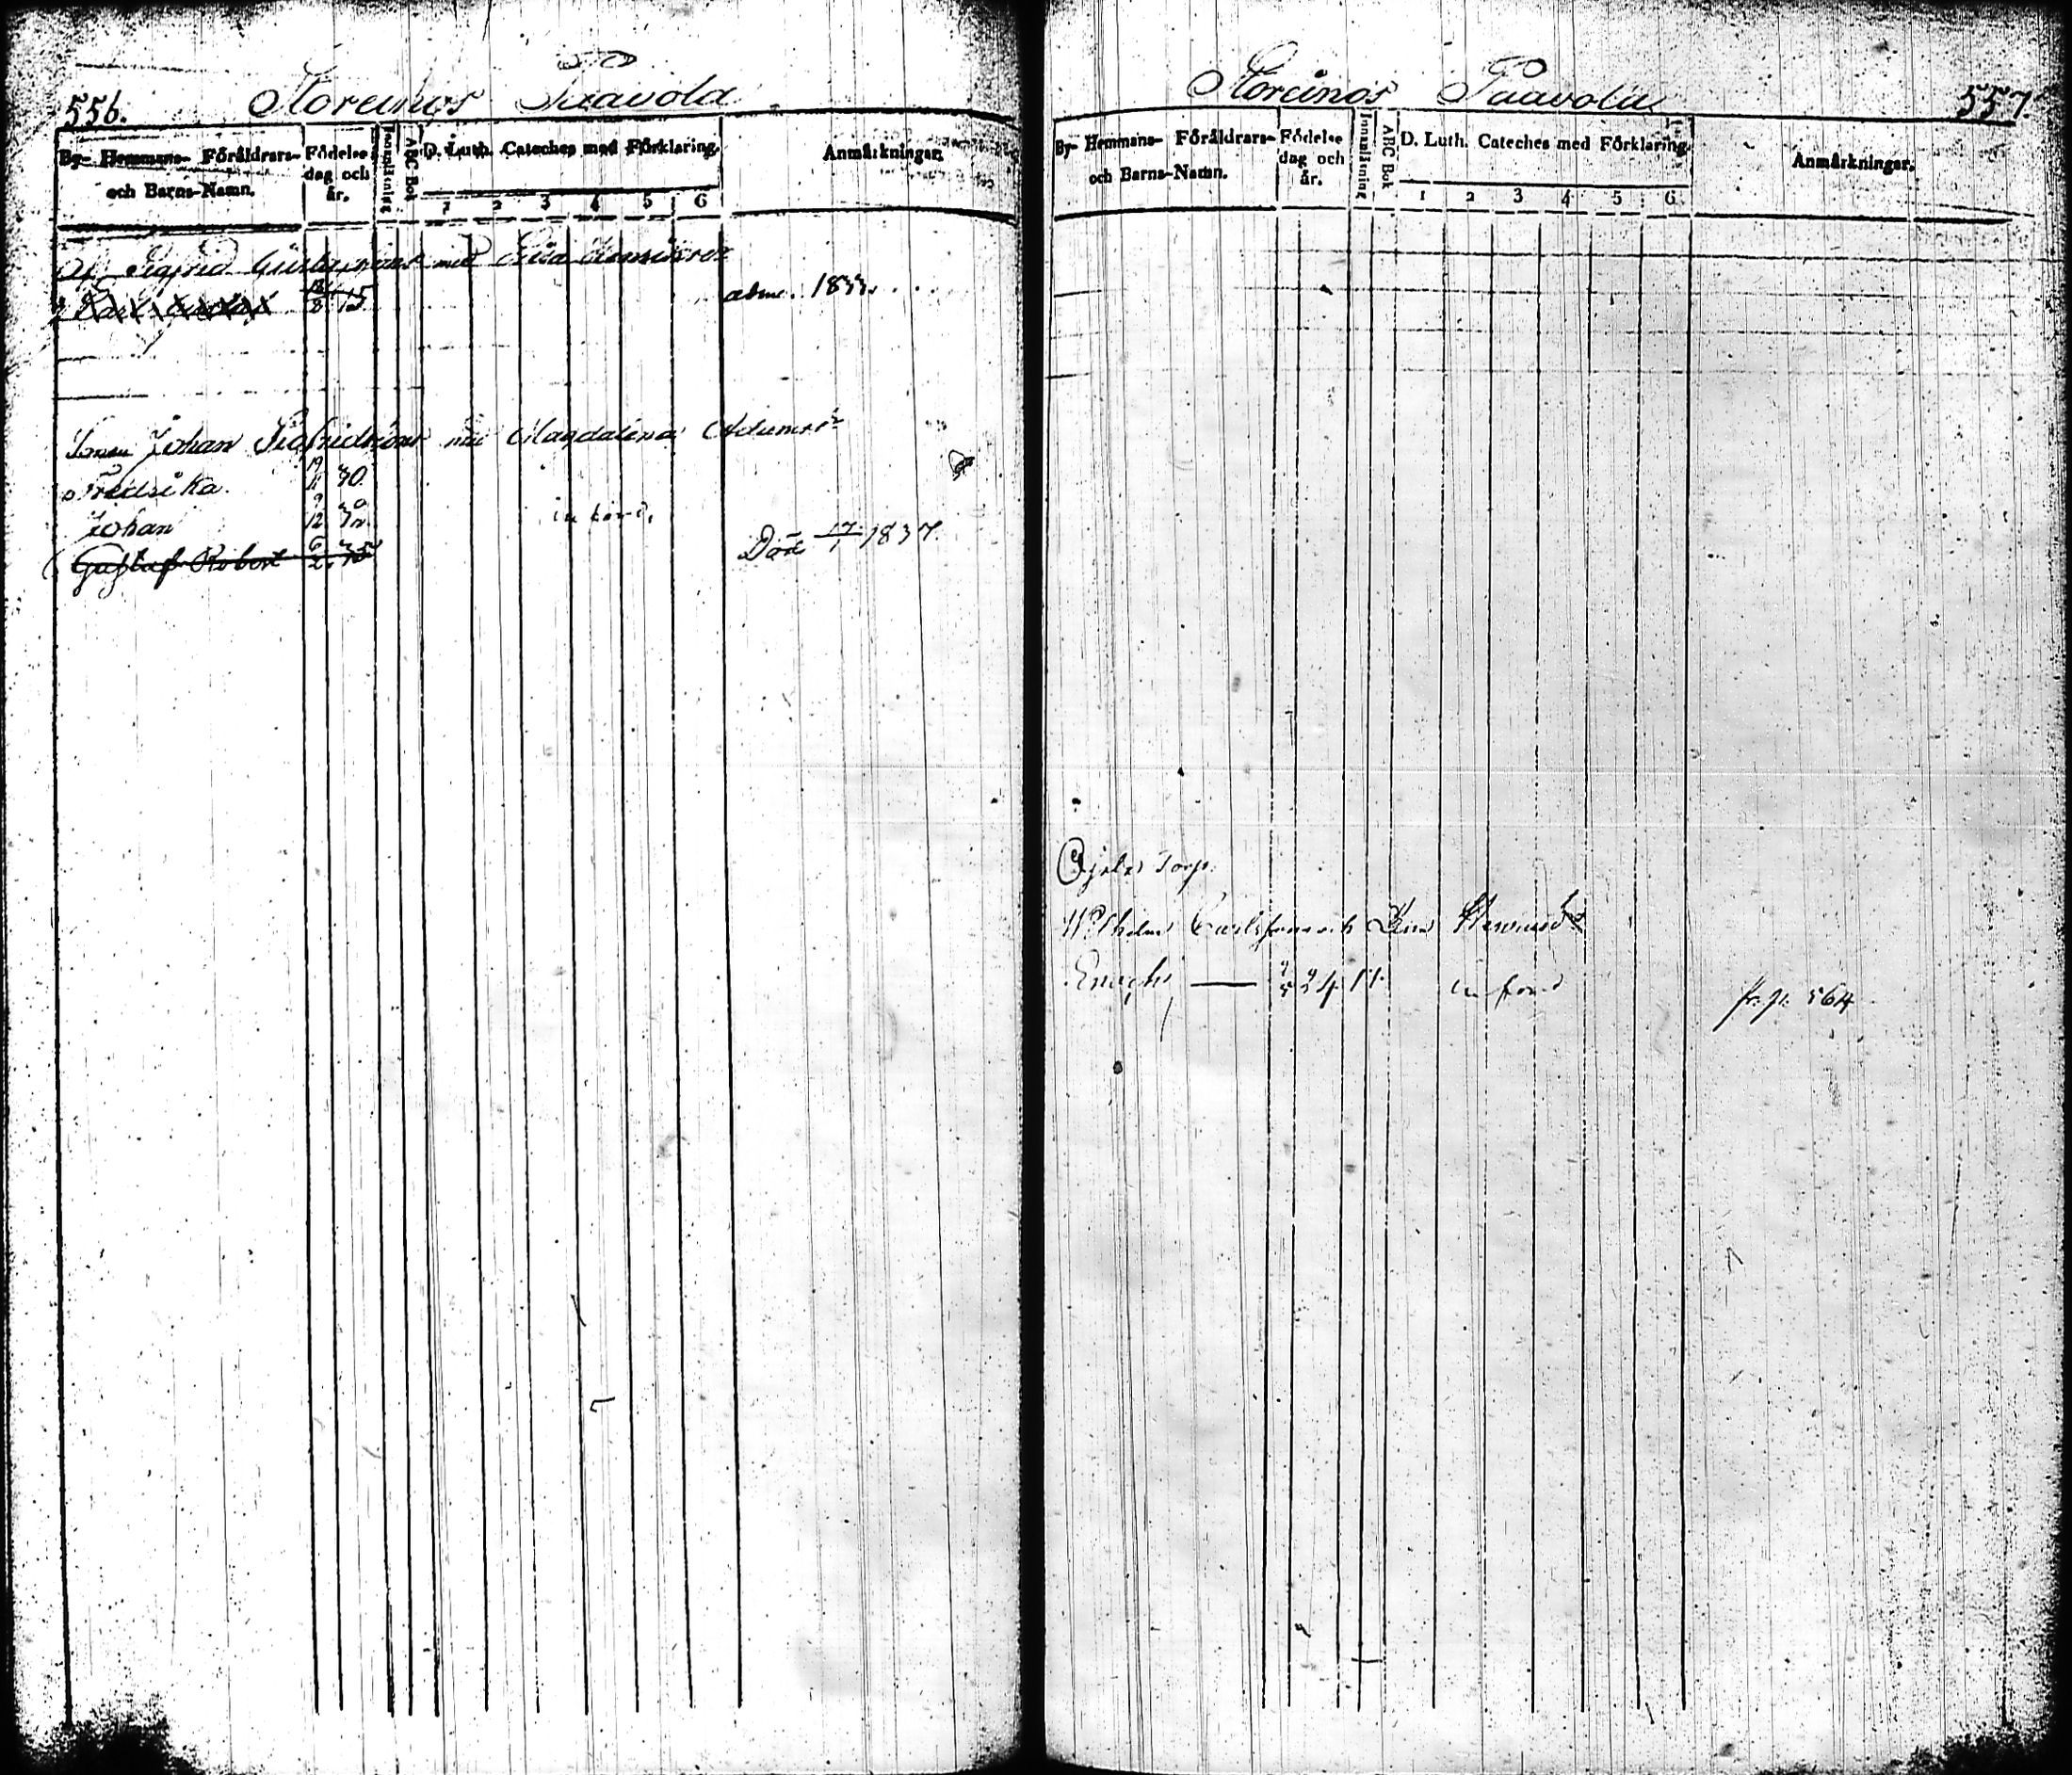 556. Storeinos Paavola
By- Hemmans- Föräldrars- och Barns-Namn. Födelse dag och år. Innanläsning ABC Bok D. Luth. Cateches med Förklaring. 1 2 3 4 5 6 Anmärkningar.
Af Sigfrid med
8 15 1833.
Sonen Johan Sigfridsons med Magdalena Adamsdr
Fredrika. 19/11 30.
Johan 9/12 32. in ford.
Gustaf Robert 6/2 35 Död 17/1 1837.
Storeinos Paavola 557.
By- Hemmans- Föräldrars- och Barns-Namn. Födelse dag och år. Innanläsning ABC Bok D. Luth. Cateches med Förklaring. 1 2 3 4 5 6 Anmärkningar.
Torp.
Wilhelm Carlsson och
Enoch — 24 in ford fr. p. 564